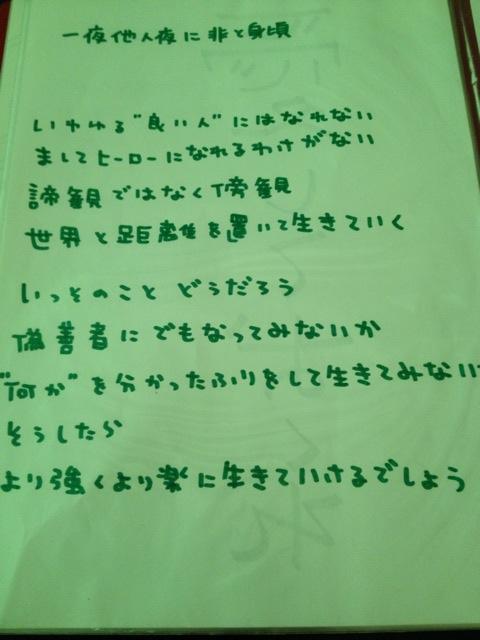 一夜他人夜に非と身頃
いわゆる"良い人"にはなれない
ましてヒーローになれるわけがない
諦観ではなく傍観
世界と距離を置いて生きていく
いっそのこと どうだろう
偽善者にでもなってみないか
"何か"を分かったふりをして生きてみない
そうしたら
より強くより楽に生きていけるでしょう